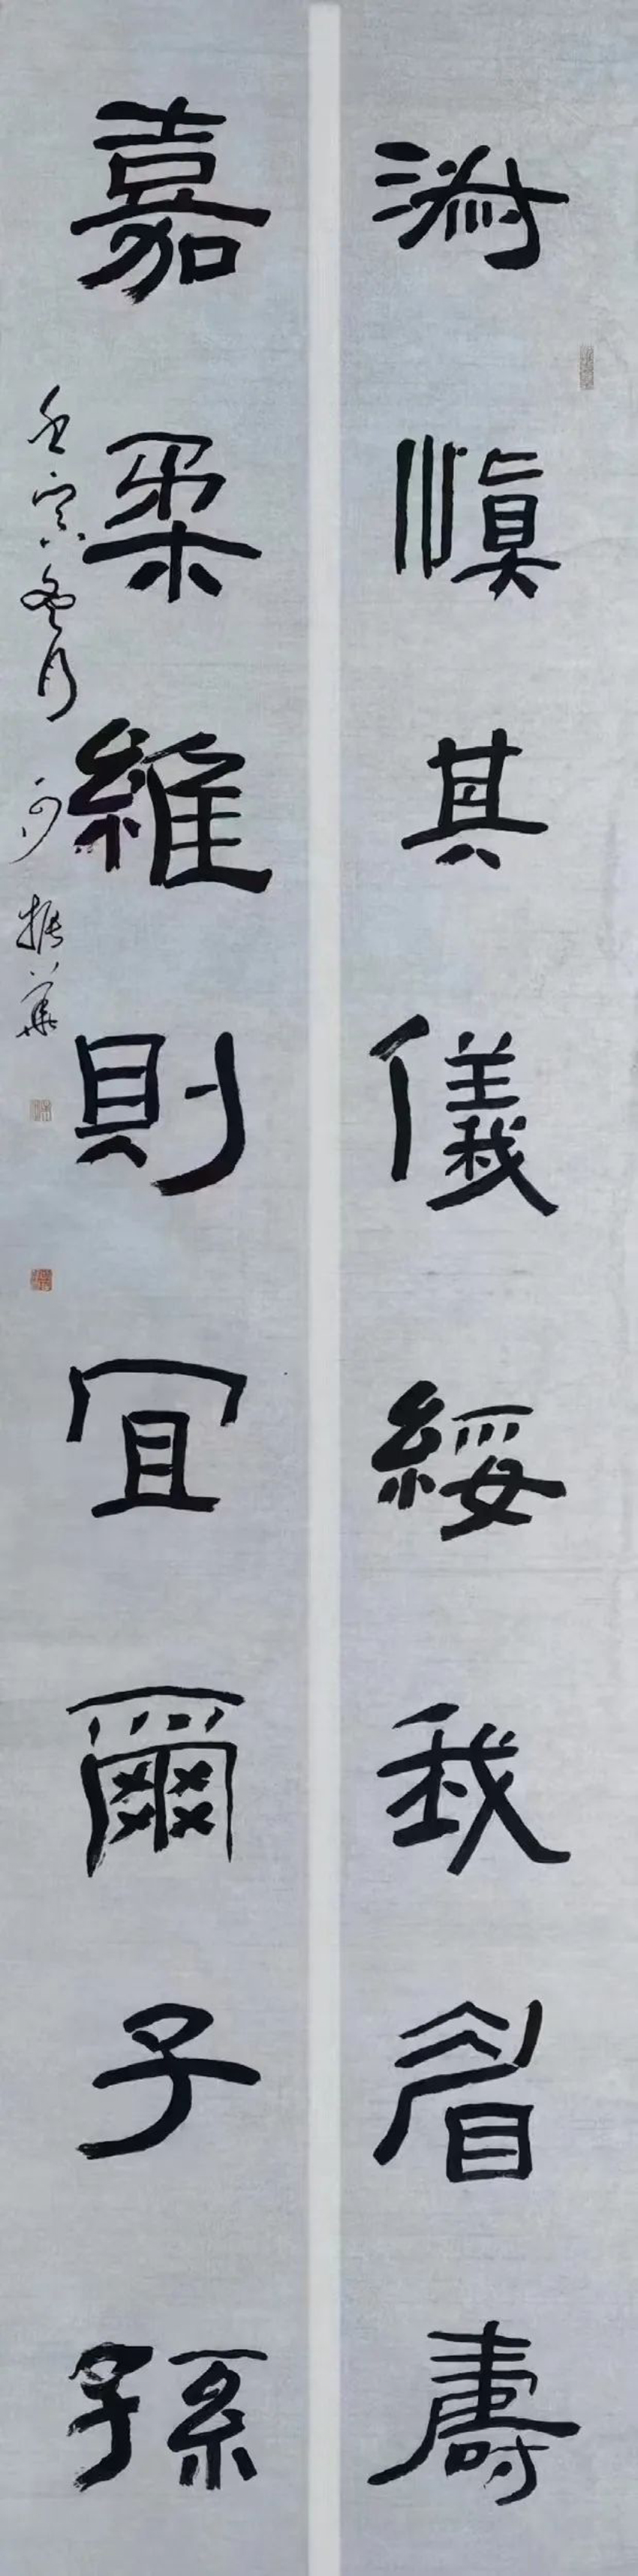 淑慎其儀綏我眉壽
嘉柔維則宜爾子孫
壬寅冬月 振華